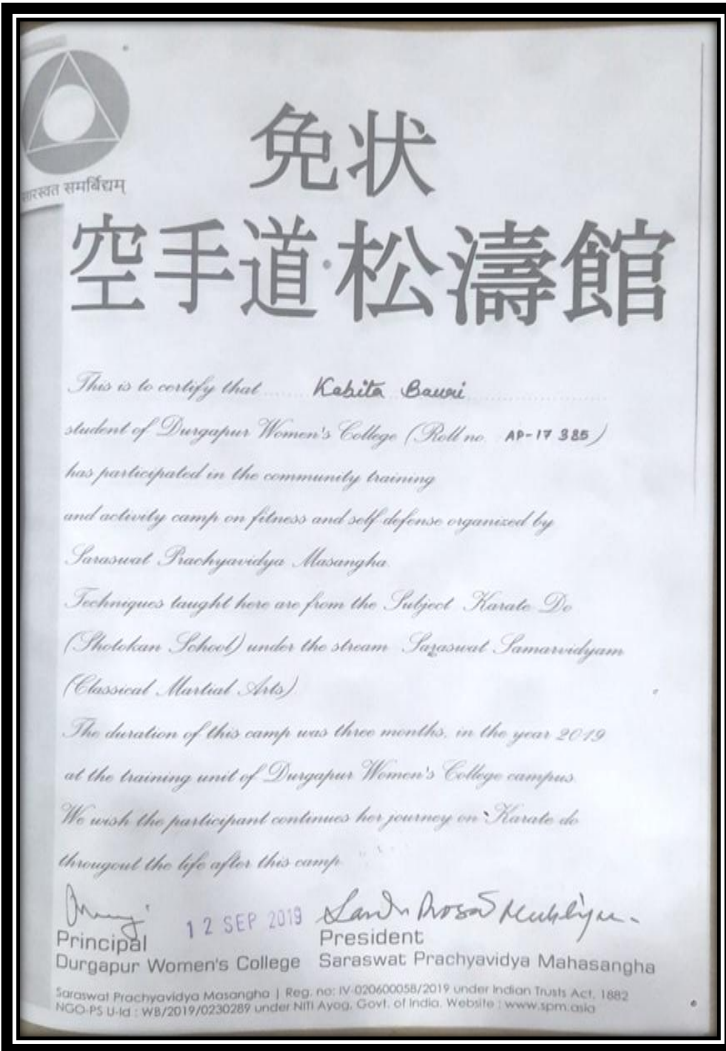 सारस्वत समर्बिद्यम्
免状
空手道·松濤館
This is to certify that ...... Kabita Bauri
student of Durgapur Women's College (Roll no. AP-17 385)
has participated in the community training
and activity camp on fitness and self defense organized by
Saraswat Prachyavidya Masangha
Techniques taught here are from the Subject Karate Do
(Shotokan School) under the stream Saraswat Samarvidyam
(Classical Martial Arts)
The duration of this camp was three months, in the year 2019
at the training unit of Durgapur Women's College campus
We wish the participant continues her journey on Karate do
througout the life after this camp
12 SEP 2019
Principal President
Durgapur Women's College Saraswat Prachyavidya Mahasangha
Saraswat Prachyavidya Masangha | Reg. no: IV-020600058/2019 under Indian Trusts Act, 1882
NGO-PS U-Id : WB/2019/0230289 under NITI Ayog, Govt. of India. Website : www.spm.asia